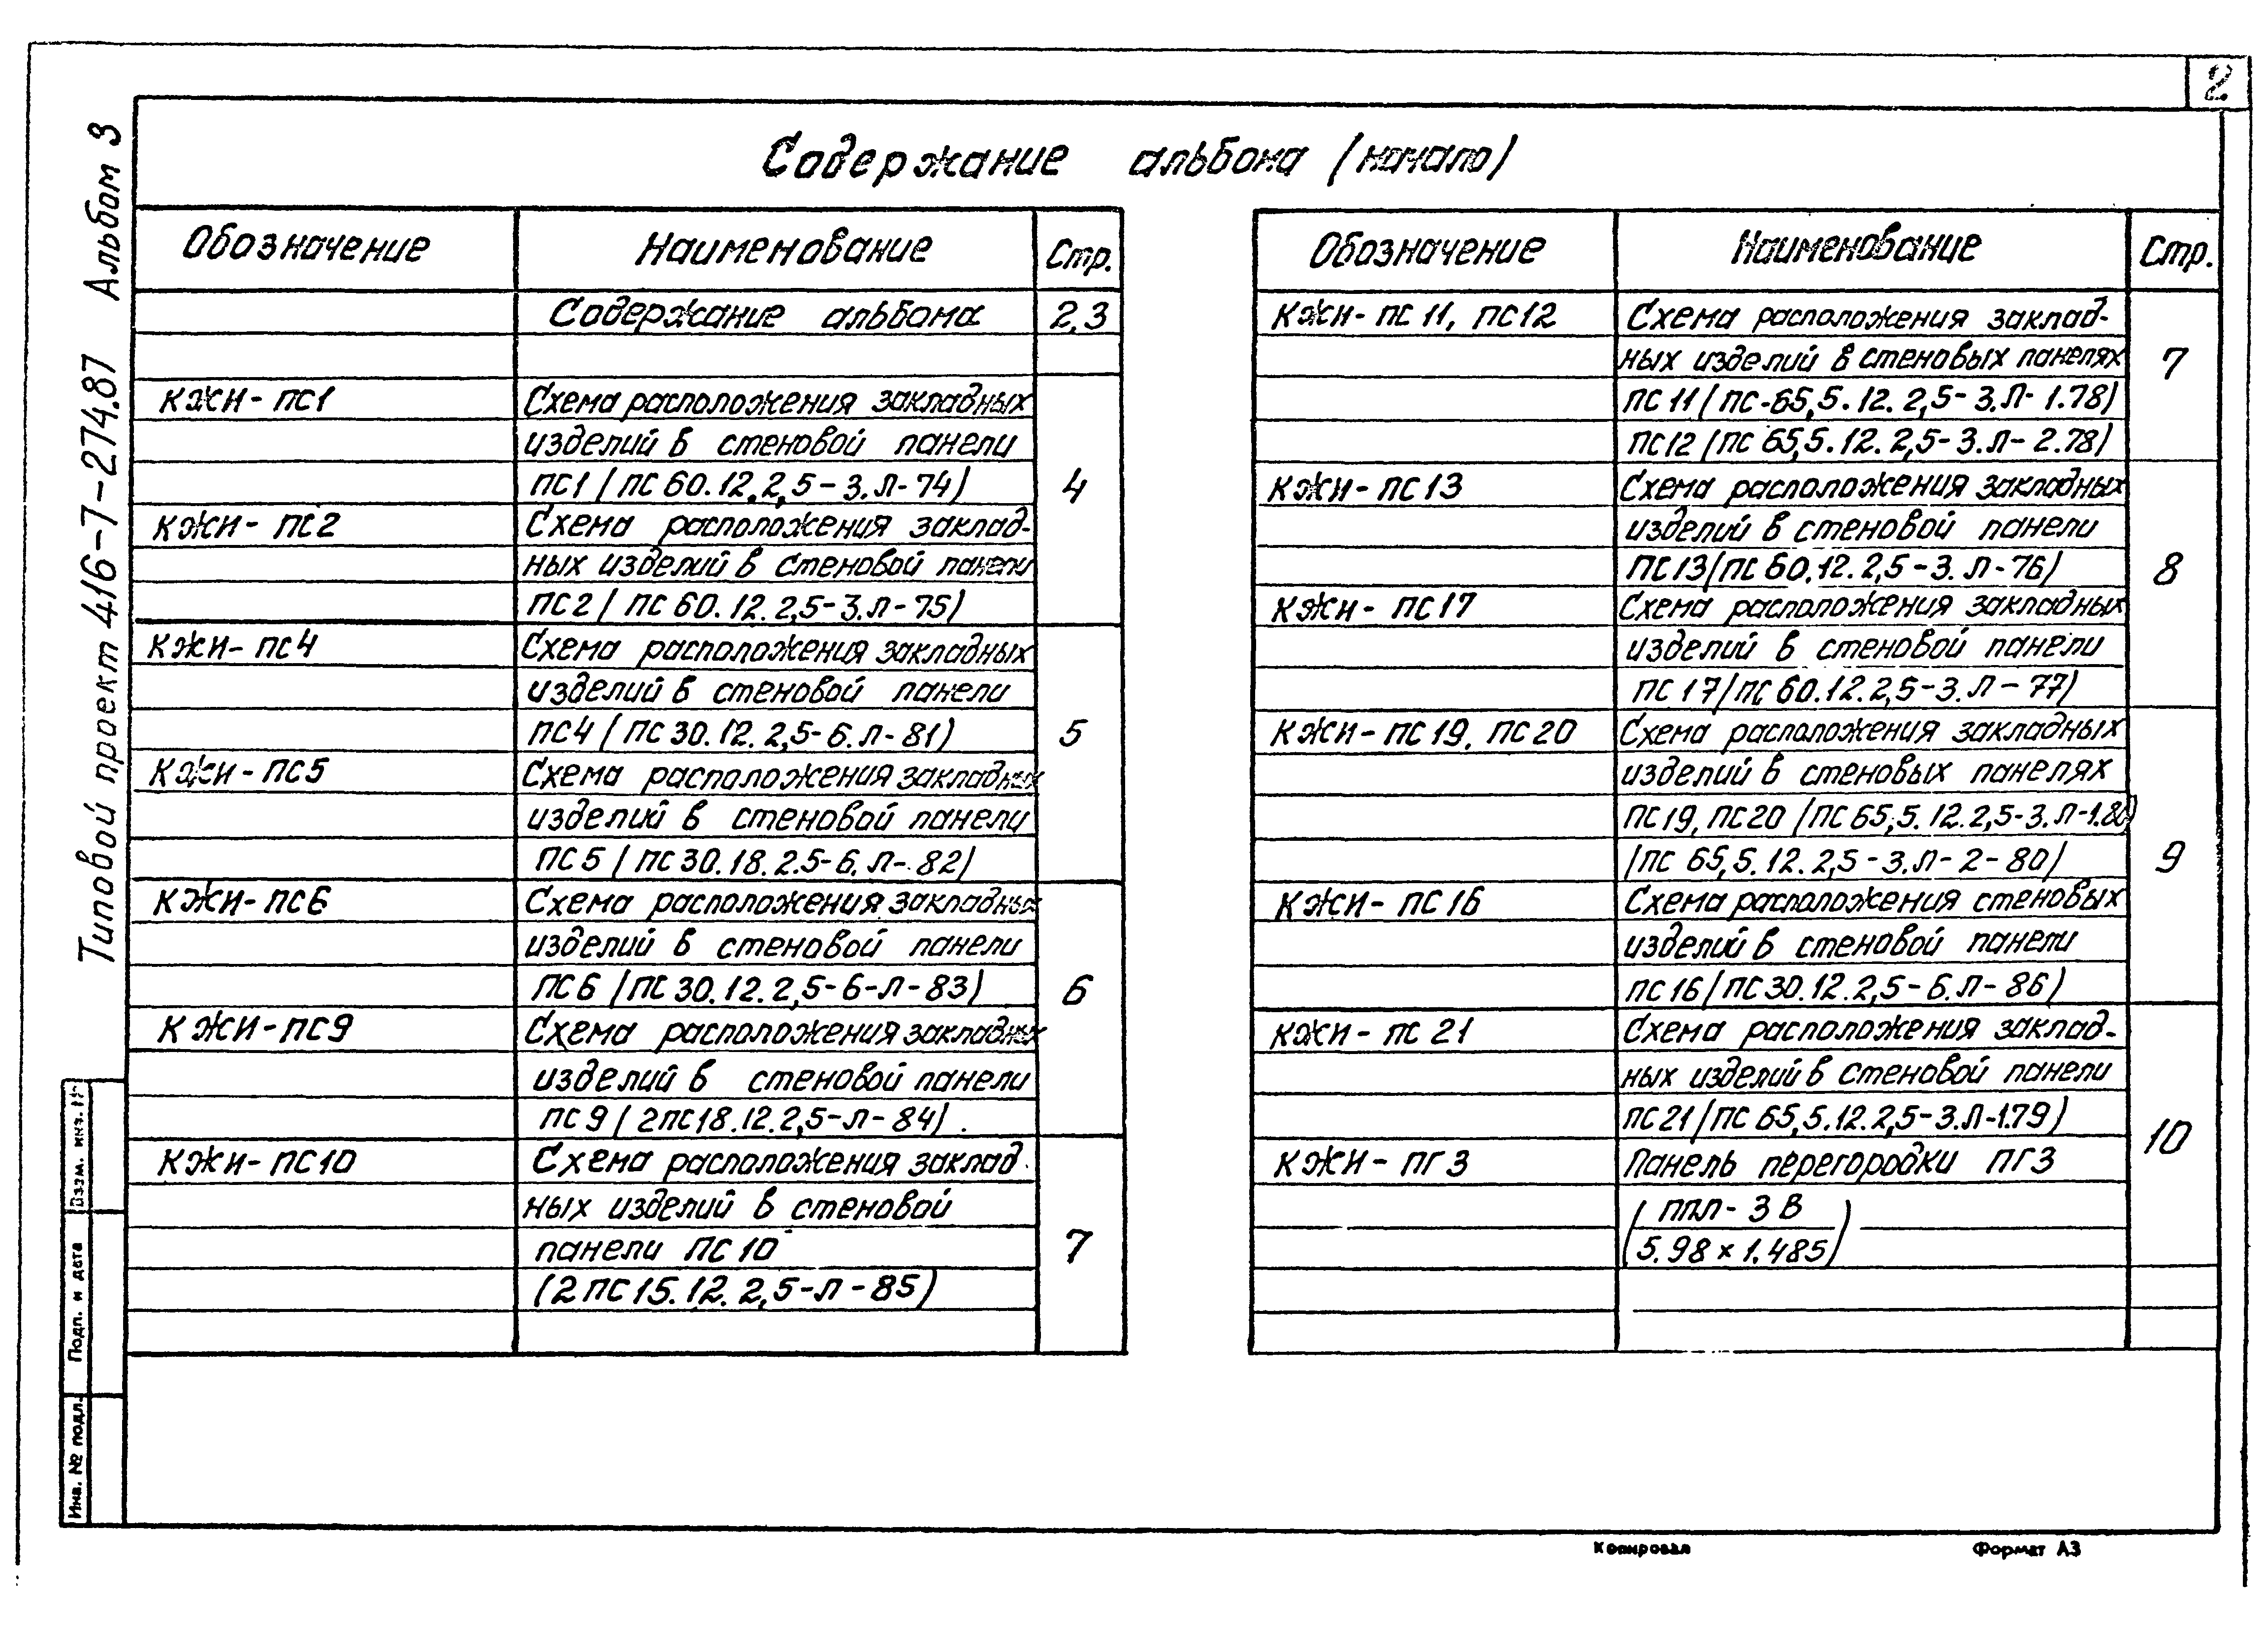 2
Содержание альбома (начало)
Типовой проект 416-7-274.87 Альбом 3
Обозначение Наименование Стр.
Содержание альбома 2,3
КЖИ-ПС1 Схема расположения закладных
изделий в стеновой панели
ПС1 (ПС 60.12.2,5-3.Л-74) 4
КЖИ-ПС2 Схема расположения заклад-
ных изделий в стеновой панели
ПС2 (ПС 60.12.2,5-3.Л-75)
КЖИ-ПС4 Схема расположения закладных
изделий в стеновой панели
ПС4 (ПС 30.12.2,5-6.Л-81) 5
КЖИ-ПС5 Схема расположения закладных
изделий в стеновой панели
ПС5 (ПС 30.18.2.5-6.Л-82)
КЖИ-ПС6 Схема расположения закладных
изделий в стеновой панели
ПС6 (ПС 30.12.2,5-6-Л-83) 6
КЖИ-ПС9 Схема расположения закладных
изделий в стеновой панели
ПС9 (2ПС18.12.2,5-Л-84).
КЖИ-ПС10 Схема расположения заклад-
ных изделий в стеновой
панели ПС10 7
(2ПС15.12.2,5-Л-85)
Обозначение Наименование Стр.
КЖИ-ПС11, ПС12 Схема расположения заклад-
ных изделий в стеновых панелях 7
ПС11 (ПС-65,5.12.2,5-3.Л-1.78)
ПС12 (ПС 65,5.12.2,5-3.Л-2.78)
КЖИ-ПС13 Схема расположения закладных
изделий в стеновой панели
ПС13 (ПС 60.12.2,5-3.Л-76) 8
КЖИ-ПС17 Схема расположения закладных
изделий в стеновой панели
ПС17 (ПС 60.12.2,5-3.Л-77)
КЖИ-ПС19, ПС20 Схема расположения закладных
изделий в стеновых панелях
ПС19, ПС20 (ПС 65,5.12.2,5-3.Л-1.80)
(ПС 65,5.12.2,5-3.Л-2-80) 9
КЖИ-ПС16 Схема расположения стеновых
изделий в стеновой панели
ПС16 (ПС 30.12.2,5-6.Л-86)
КЖИ-ПС21 Схема расположения заклад-
ных изделий в стеновой панели
ПС21 (ПС 65,5.12.2,5-3.Л-1.79) 10
КЖИ-ПГ3 Панель перегородки ПГ3
(ППЛ-3В
5.98х1.485)
Инв. № подл. Подп. и дата Взам. инв. №
Копировал Формат А3